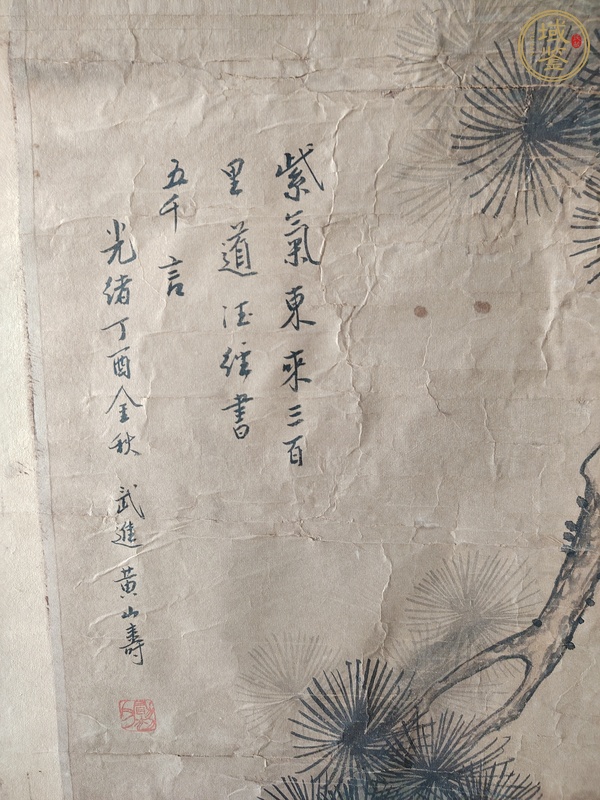 紫氣東來三百
里道德經書
五千言
光绪丁酉金秋 武進黃山壽
域鉴